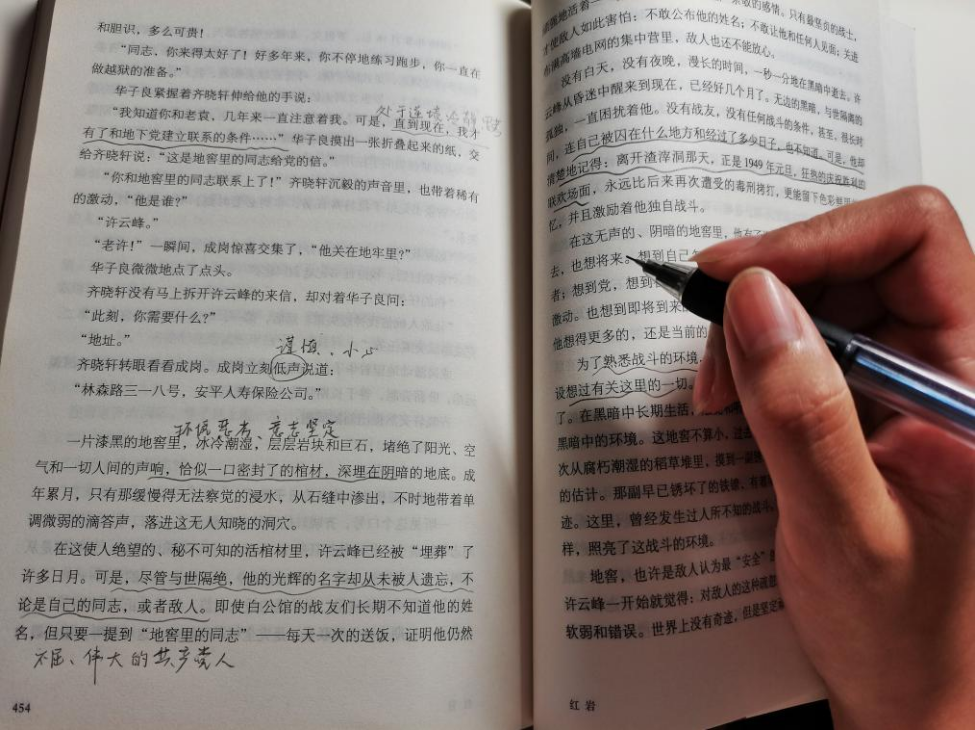 和胆识，多么可贵！
“同志，你来得太好了！好多年来，你不停地练习跑步，你一直在
做越狱的准备。”
华子良紧握着齐晓轩伸给他的手说：
处于连续
“我知道你和老袁、几年来一直注意着我。可是，直到现在，我才
有了和地下党建立联系的条件……”华子良摸出一张折叠起来的纸，交
给齐晓轩说：“这是地窖里的同志给党的信。”
“你和地窖里的同志联系上了！”齐晓轩沉毅的声音里，也带着稀有
的激动，“他是谁？”
“许云峰。”
“老许！”一瞬间，成岗惊喜交集了，“他关在地牢里？”
华子良微微地点了点头。
齐晓轩没有马上拆开许云峰的来信，却对着华子良问：
“此刻，你需要什么？”
“地址。”
谨慎、小心
齐晓轩转眼看看成岗。成岗立刻低声说道：
“林森路三一八号，安平人寿保险公司。”
环境恶劣，意志坚定
一片漆黑的地窖里，冰冷潮湿，层层岩块和巨石，堵绝了阳光、空
气和一切人间的声响，恰似一口密封了的棺材，深埋在阴暗的地底。成
年累月，只有那缓慢得无法察觉的浸水，从石缝中渗出，不时地带着单
调微弱的滴答声，落进这无人知晓的洞穴。
在这使人绝望的、秘不可知的活棺材里，许云峰已经被“埋葬”了
许多日月。可是，尽管与世隔绝，他的光辉的名字却从未被人遗忘，不
论是自己的同志，或者敌人。即使白公馆的战友们长期不知道他的姓
名，但只要一提到“地窖里的同志”——每天一次的送饭，证明他仍然
不屈、伟大的共产党人
454
地活着
的感情。只有最坚贞的战士，
才使敌人如此害怕：不敢公布他的姓名；不敢让他和任何人见面；关进
布满高墙电网的集中营里，敌人也还不能放心。
没有白天，没有夜晚，漫长的时间，一秒一分地在黑暗中逝去。许
云峰从昏迷中醒来到现在，已经好几个月了。无边的黑暗，与世隔离的
孤独，一直困扰着他。没有战友，没有任何战斗的条件，甚至，很长时
间，连自己被囚在什么地方和经过了多少日子，他也不知道。可是，他却
清楚地记得：离开渣滓洞那天，正是1949年元旦，狂热的庆祝胜利的
联欢场面，永远比后来再次遭受的毒刑拷打，更能留下色彩鲜明的
忆，并且激励着他独自战斗。
在这无声的、阴暗的地窖里，他有了
去，也想将来。想到自己
者；想到党，想到
激动。也想到即将到来
他想得更多的，还是当前的
为了熟悉战斗的环境，
设想过有关这里的一切。
了。在黑暗中长期生活，
黑暗中的环境。这地窖不算小，过去
次从腐朽潮湿的稻草堆里，摸到一副
的估计。那副早已锈坏了的铁镣，有着
迹。这里，曾经发生过人所不知的战斗，
样，照亮了这战斗的环境。
地窖，也许是敌人认为最“安全”的
许云峰一开始就觉得：对敌人的这种疏忽
软弱和错误。世界上没有奇迹，但是坚定
红岩